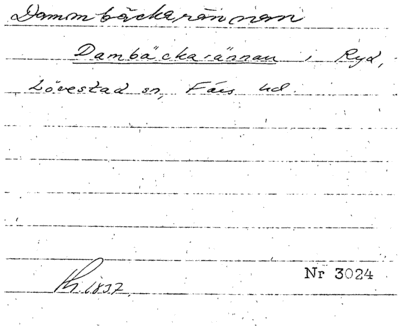 Dammbäckarännan
Dambäckarännan i Ryd,
Lövestad sn, Färs hd.
Nr 3024
Th. 1837